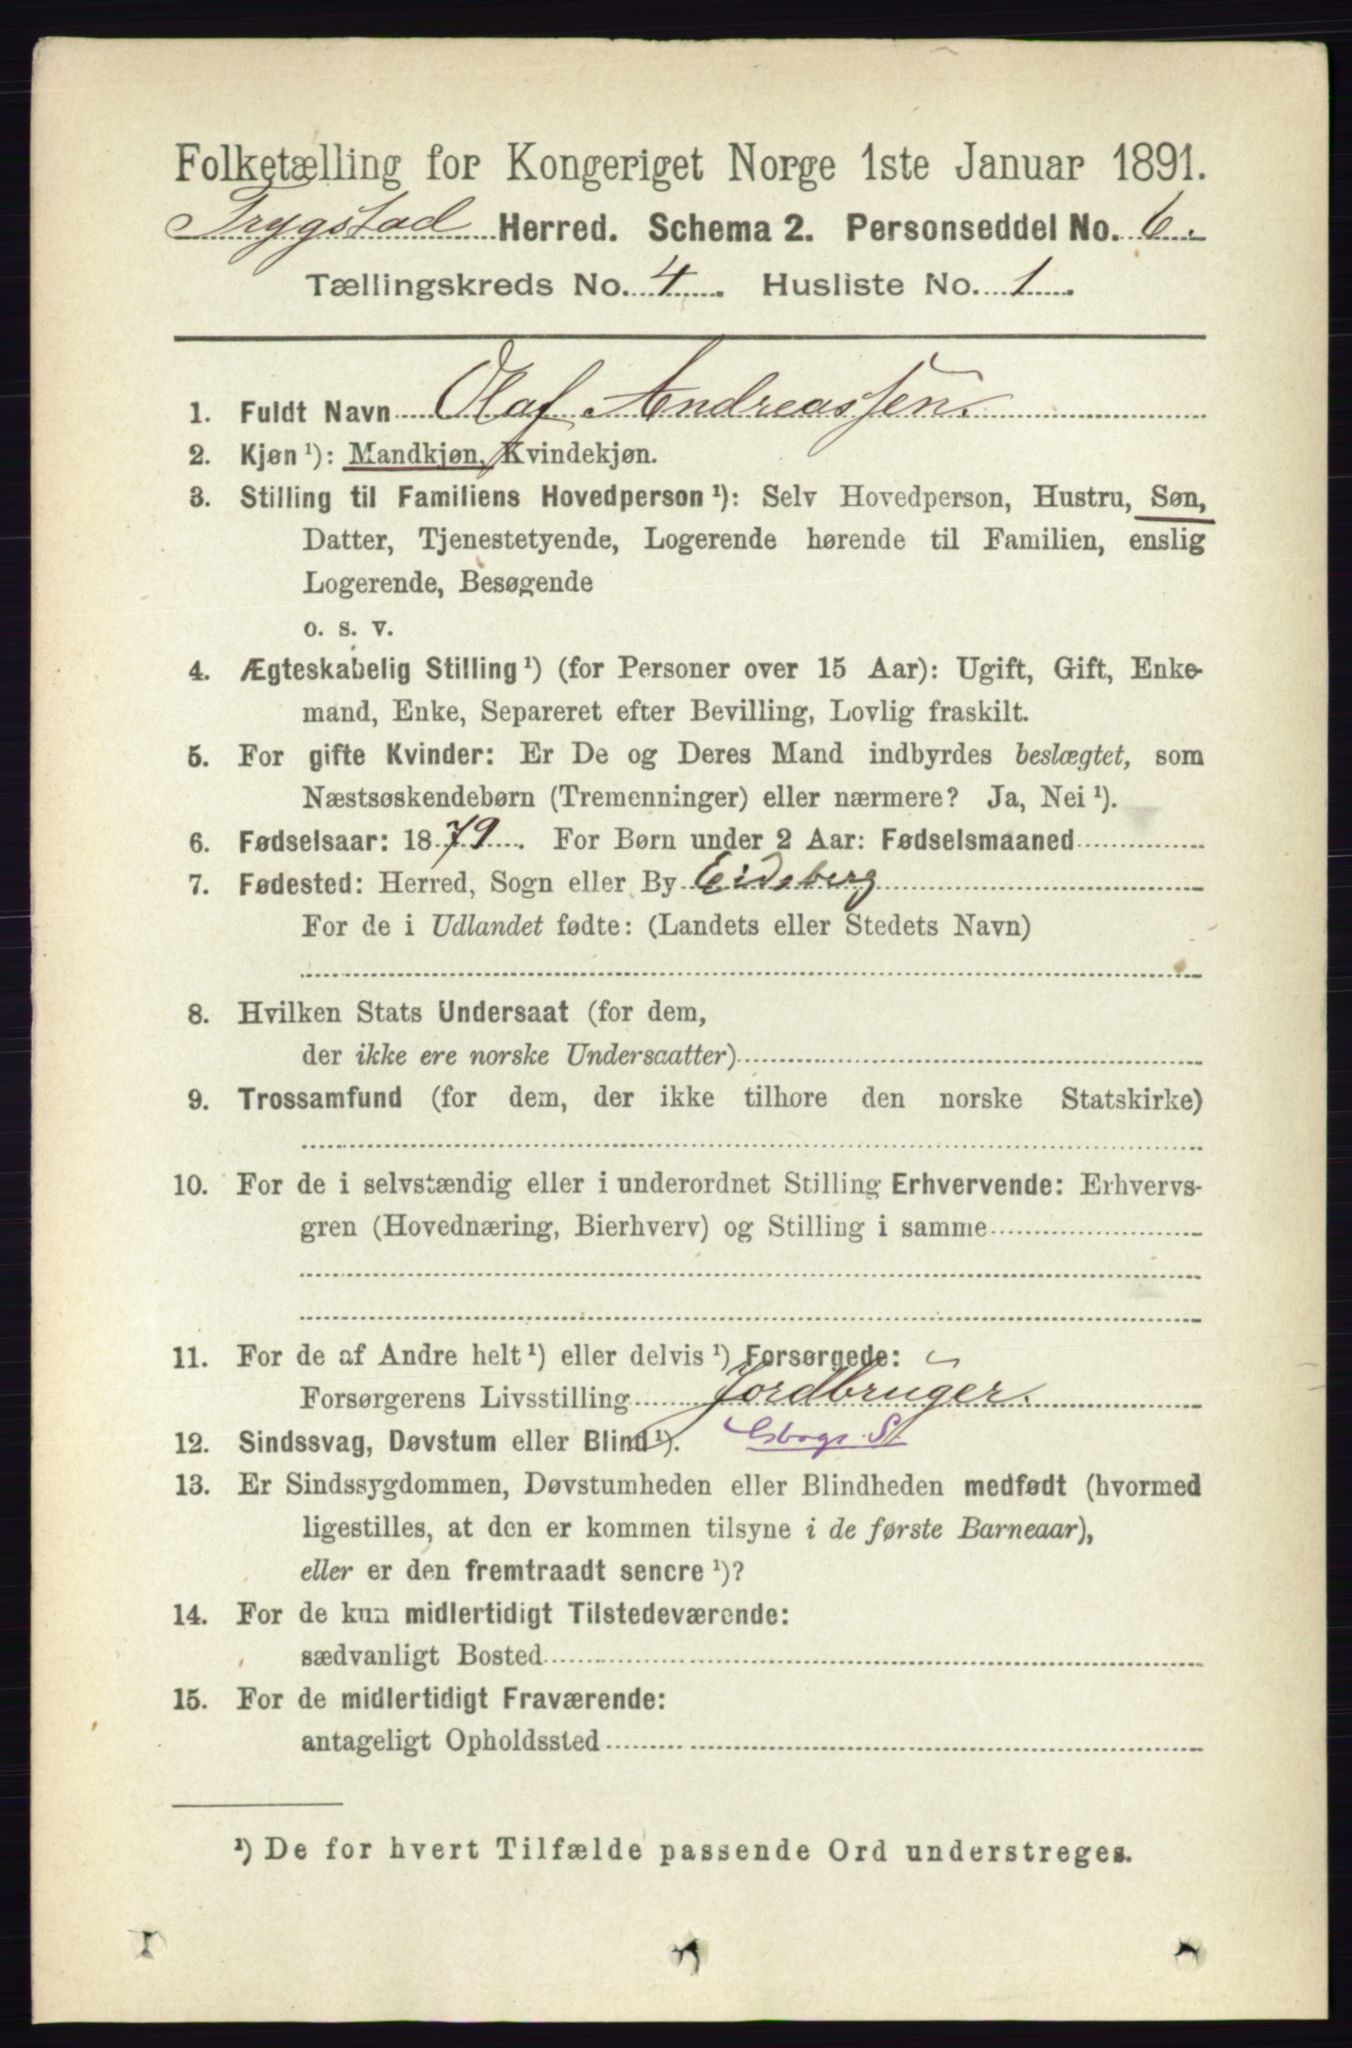 Folketælling for Kongeriget Norge 1ste Januar 1891.
Trygstad Herred. Schema 2. Personseddel No. 6.
Tællingskreds No. 4. Husliste No. 1.
1. Fuldt Navn Olaf Andreassen.
2. Kjøn ¹): Mandkjøn, Kvindekjøn.
3. Stilling til Familiens Hovedperson ¹): Selv Hovedperson, Hustru, Søn,
Datter, Tjenestetyende, Logerende hørende til Familien, enslig
Logerende, Besøgende
o. s. v.
4. Ægteskabelig Stilling ¹) (for Personer over 15 Aar): Ugift, Gift, Enke-
mand, Enke, Separeret efter Bevilling, Lovlig fraskilt.
5. For gifte Kvinder: Er De og Deres Mand indbyrdes beslægtet, som
Næstsøskendebørn (Tremenninger) eller nærmere? Ja, Nei ¹).
6. Fødselsaar: 1879. For Børn under 2 Aar: Fødselsmaaned
7. Fødested: Herred, Sogn eller By Eidsberg
For de i Udlandet fødte: (Landets eller Stedets Navn)
8. Hvilken Stats Undersaat (for dem,
der ikke ere norske Undersaatter)
9. Trossamfund (for dem, der ikke tilhøre den norske Statskirke)
10. For de i selvstændig eller i underordnet Stilling Erhvervende: Erhvervs-
gren (Hovednæring, Bierhverv) og Stilling i samme
11. For de af Andre helt ¹) eller delvis ¹) Forsørgede:
Forsørgerens Livsstilling Jordbruger.
12. Sindssvag, Døvstum eller Blind ¹).
13. Er Sindssygdommen, Døvstumheden eller Blindheden medfødt (hvormed
ligestilles, at den er kommen tilsyne i de første Barneaar),
eller er den fremtraadt senere ¹)?
14. For de kun midlertidigt Tilstedeværende:
sædvanligt Bosted
15. For de midlertidigt Fraværende:
antageligt Opholdssted
¹) De for hvert Tilfælde passende Ord understreges.